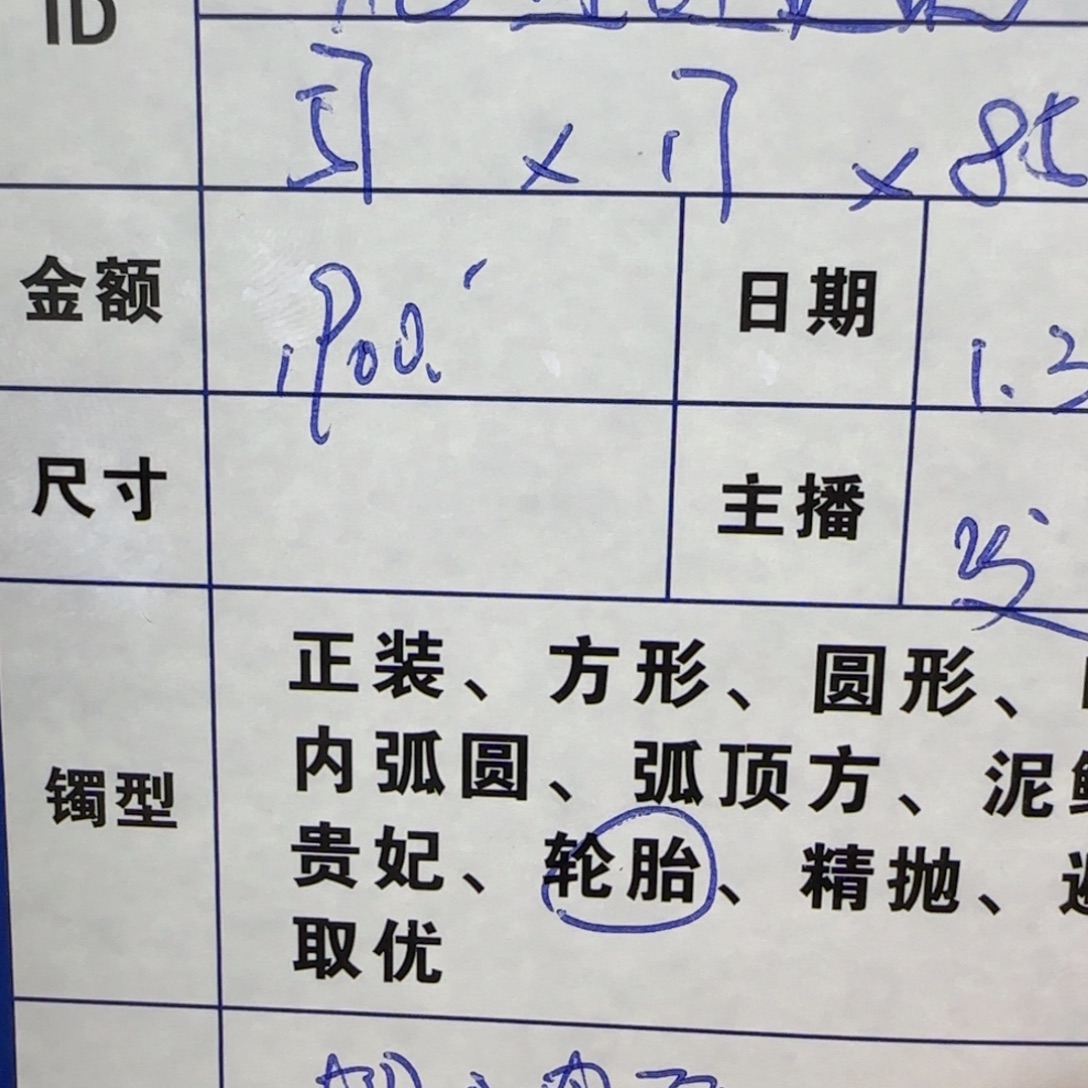 ID
57 × 17 × 85
金额 1900. 日期 1.3
尺寸 主播
正装、方形、圆形、
内弧圆、弧顶方、泥
镯型
贵妃、轮胎、精抛、
取优